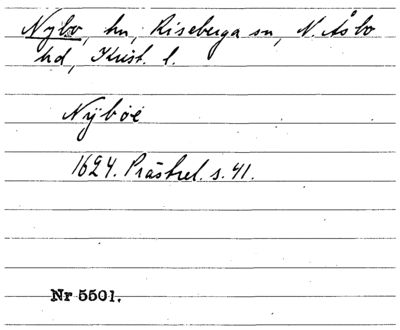 Nybo, hn, Riseberga sn, N. Åsbo
hd, Krist. l.
Nÿböe
1624. Prästrel. s. 41.
Nr 5501.